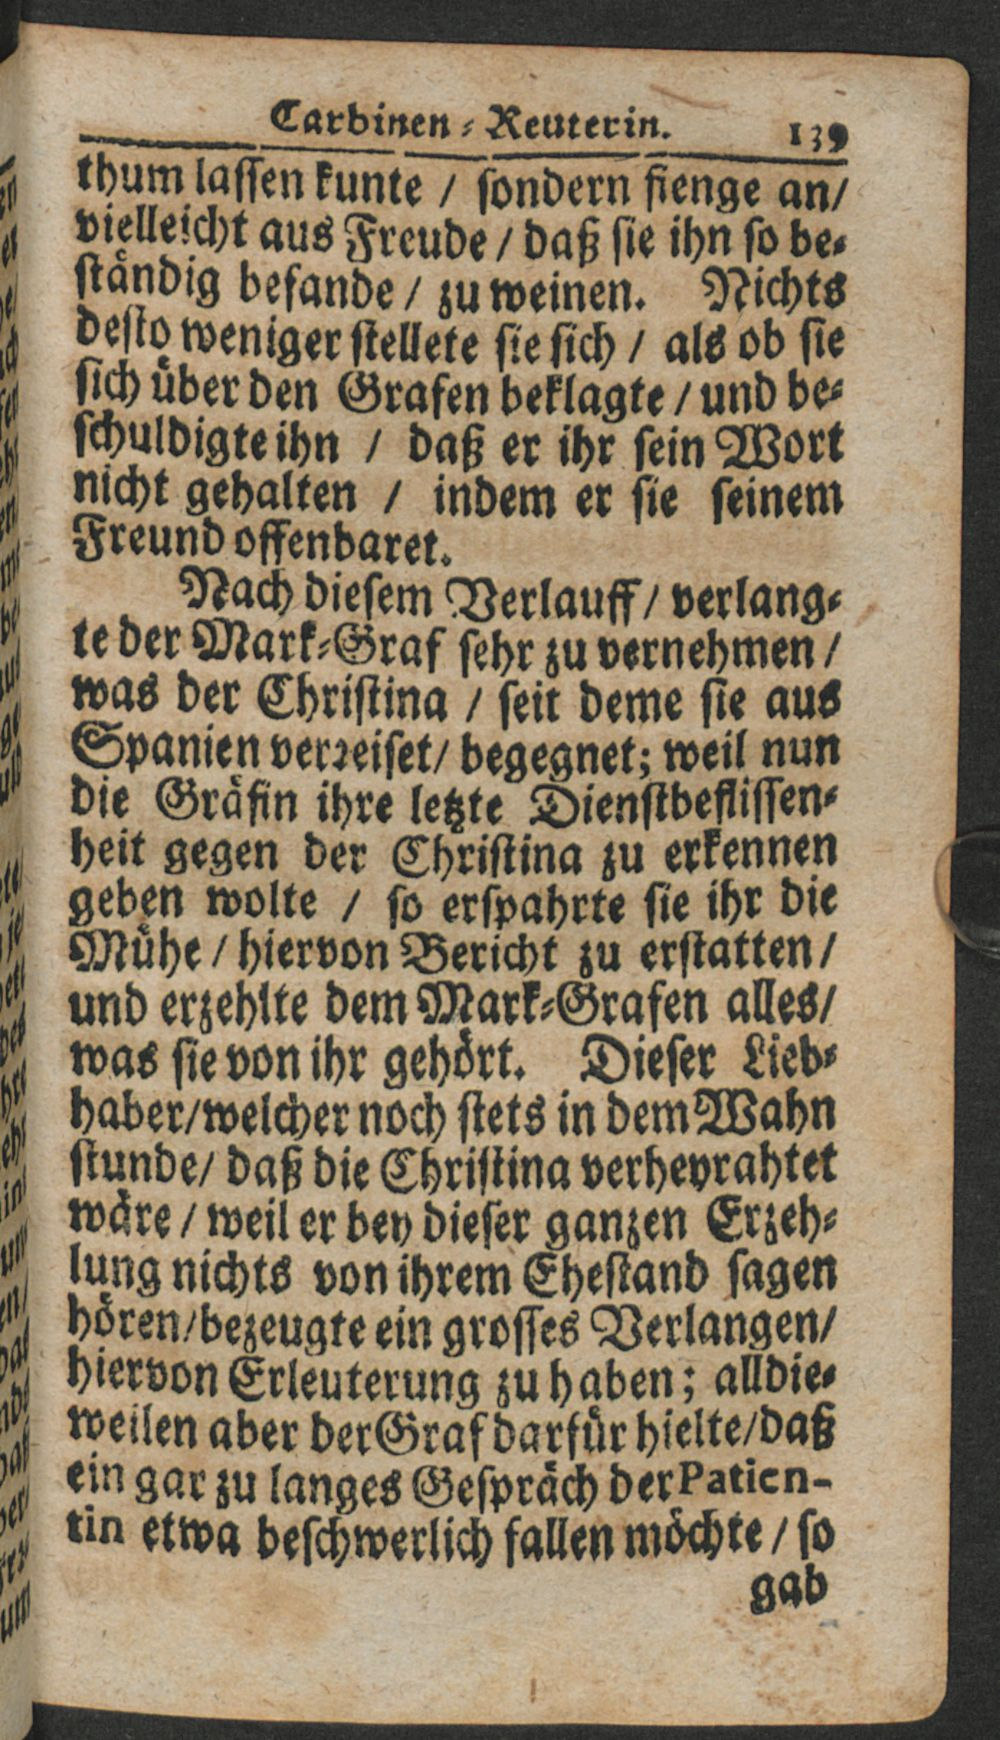 Carbinen-Reuterin. 139
thum lassen kunte / sondern fienge an/
vielleicht aus Freude / daß sie ihn so be-
ständig befande / zu weinen. Nichts
desto weniger stellete sie sich / als ob sie
sich über den Grafen beklagte / und be-
schuldigte ihn / daß er ihr sein Wort
nicht gehalten / indem er sie seinem
Freund offenbaret.
Nach diesem Verlauff / verlang-
te der Mark-Graf sehr zu vernehmen /
was der Christina / seit deme sie aus
Spanien verreiset/ begegnet; weil nun
die Gräfin ihre letzte Dienstbeflissen-
heit gegen der Christina zu erkennen
geben wolte / so erspahrte sie ihr die
Mühe / hiervon Bericht zu erstatten /
und erzehlte dem Mark-Grafen alles/
was sie von ihr gehört. Dieser Lieb-
haber/welcher noch stets in dem Wahn
stunde/ daß die Christina verheyrahtet
wäre / weil er bey dieser ganzen Erzeh-
lung nichts von ihrem Ehestand sagen
hören/bezeugte ein grosses Verlangen/
hiervon Erleuterung zu haben; alldie-
weilen aber der Graf darfür hielte/daß
ein gar zu langes Gespräch der Patien-
tin etwa beschwerlich fallen möchte / so
gab